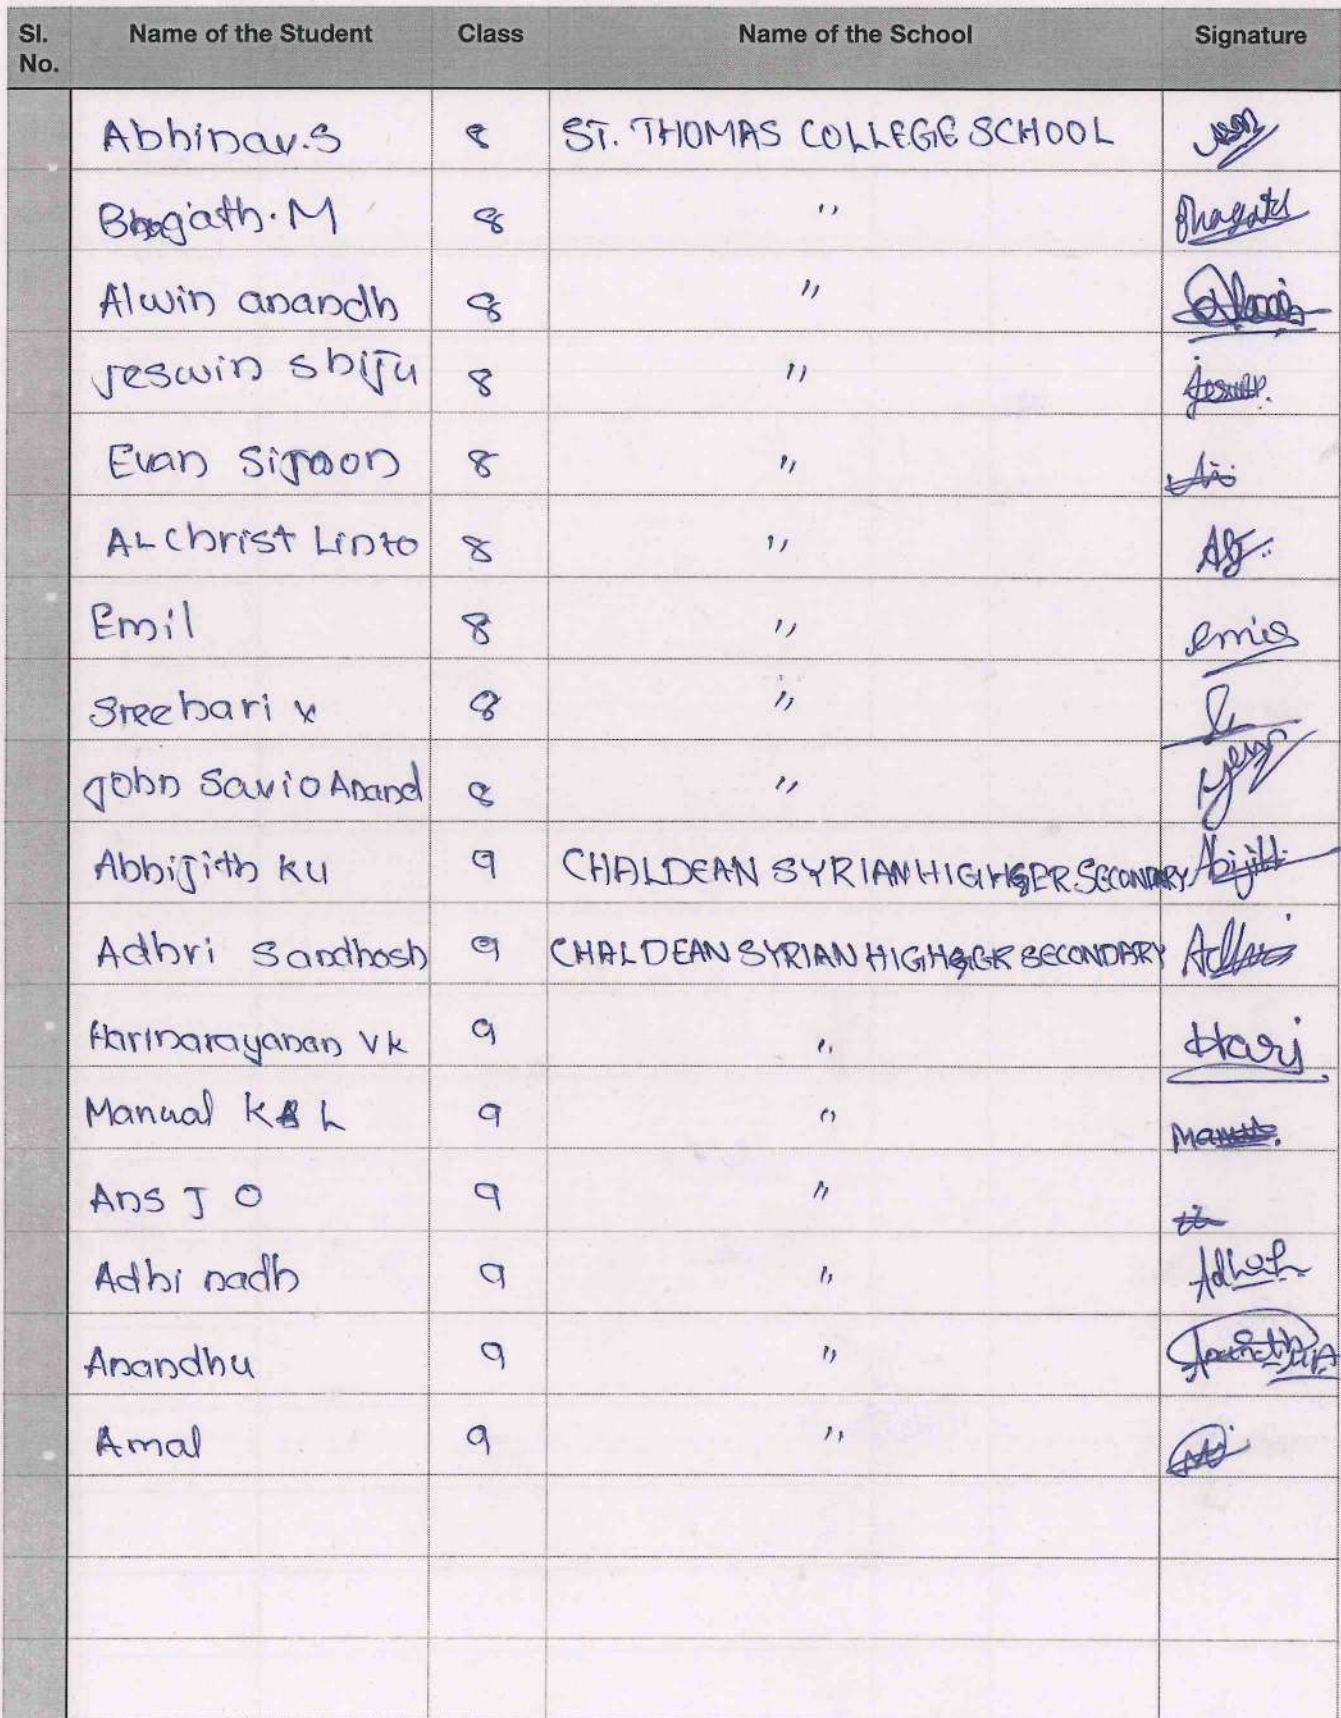 Sl. No. Name of the Student Class Name of the School Signature
Abhinav.S 8 ST. THOMAS COLLEGE SCHOOL
Bhagath.M 8 " Bhagath
Alwin anandh 8 "
Jeswin shiju 8 "
Evan Simon 8 "
AL Christ Linto 8 "
Emil 8 "
Sreehari 8 "
John Savio Anand 8 "
Abhijith KU 9 CHALDEAN SYRIAN HIGHER SECONDARY Abijith
Adhri Sandhosh 9 CHALDEAN SYRIAN HIGHER SECONDARY
Harinarayanan VK 9 " Hari
Manual K L 9 "
Ans J O 9 "
Adhi nadh 9 "
Anandhu 9 "
Amal 9 "